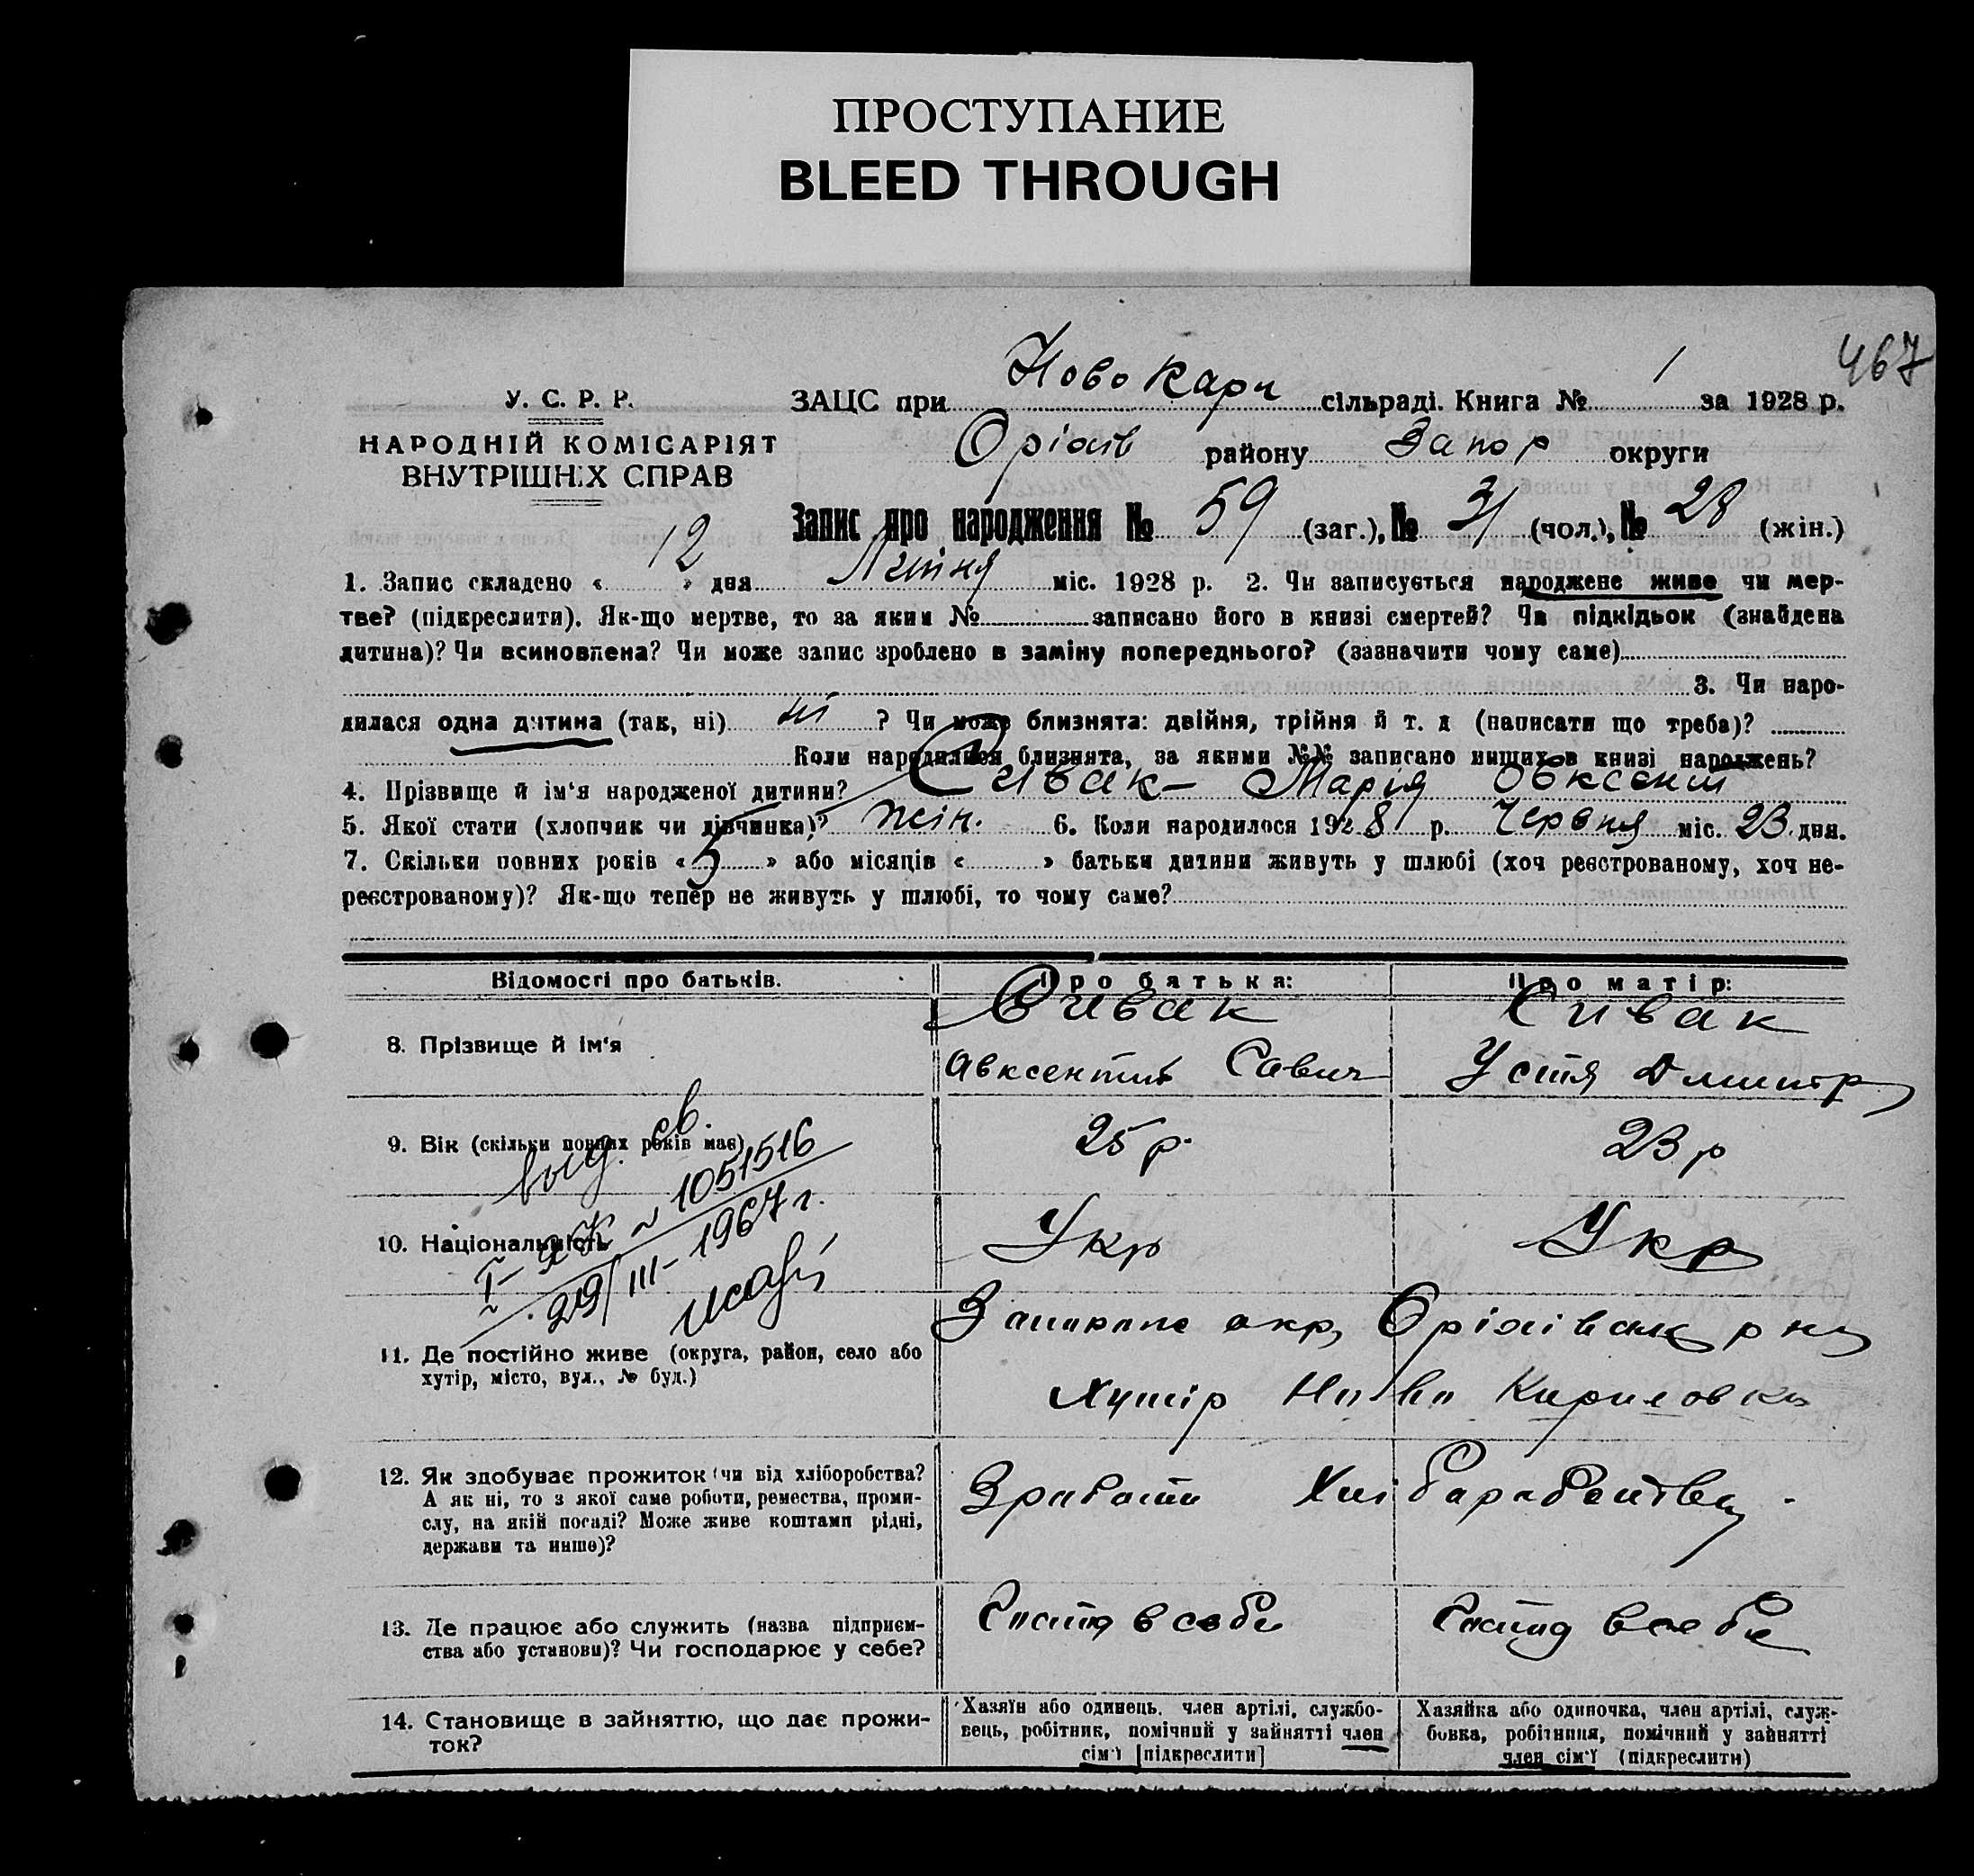 ПРОСТУПАНИЕ
BLEED THROUGH
467
У. С. Р. Р.
НАРОДНІЙ КОМІСАРІЯТ
ВНУТРІШНІХ СПРАВ
ЗАЦС при Ново Кари сільраді. Книга № 1 за 1928 р.
Оріхів району Запор округи
Запис про народження № 59 (заг.), № 31 (чол.), № 28 (жін.)
1. Запис складено « 12 » дня Липня міс. 1928 р. 2. Чи записується народжене живе чи мер-
тве? (підкреслити). Як-що мертве, то за яким № записано його в книзі смертей? Чи підкідьок (знайдена
дитина)? Чи всиновлена? Чи може запис зроблено в заміну попереднього? (зазначити чому саме)
3. Чи наро-
дилася одна дитина (так, ні) ні ? Чи може близнята: двійня, трійня й т. д (написати що треба)?
Коли народилися близнята, за якими №№ записано инших в книзі народжень?
4. Прізвище й ім'я народженої дитини? Сивак - Марія Овксент
5. Якої стати (хлопчик чи дівчинка)? жін. 6. Коли народилося 1928 р. Червня міс. 23 дня.
7. Скільки повних років « 5 » або місяців « » батьки дитини живуть у шлюбі (хоч реєстрованому, хоч не-
реєстрованому)? Як-що тепер не живуть у шлюбі, то чому саме?
Відомості про батьків. Про батька: Про матір:
8. Прізвище й ім'я
Сивак Сивак
Авксентий Савич Устя Дмитр
9. Вік (скільки повних років має) 25 р. 23 р
выд. св.
I-ЯЖ № 1051516
29/III-1967 г.
10. Національність Укр Укр
11. Де постійно живе (округа, район, село або
хутір, місто, вул., № буд.)
окр, Оріхівськ р н
Хутір Ново Кириловка
12. Як здобуває прожиток (чи від хліборобства?
А як ні, то з якої саме роботи, ремества, проми-
слу, на якій посаді? Може живе коштами рідні,
держави та инше)?
Зработи Хліборобства
13. Де працює або служить (назва підприєм-
ства або установи)? Чи господарює у себе?
Господ в себе Господ в себе
14. Становище в зайняттю, що дає прожи-
ток?
Хазяїн або одинець, член артілі, службо-
вець, робітник, помічний у зайнятті член
сім'ї [підкреслити]
Хазяйка або одиночка, член артілі, служ-
бовка, робітниця, помічний у зайнятті
член сім'ї (підкреслити)